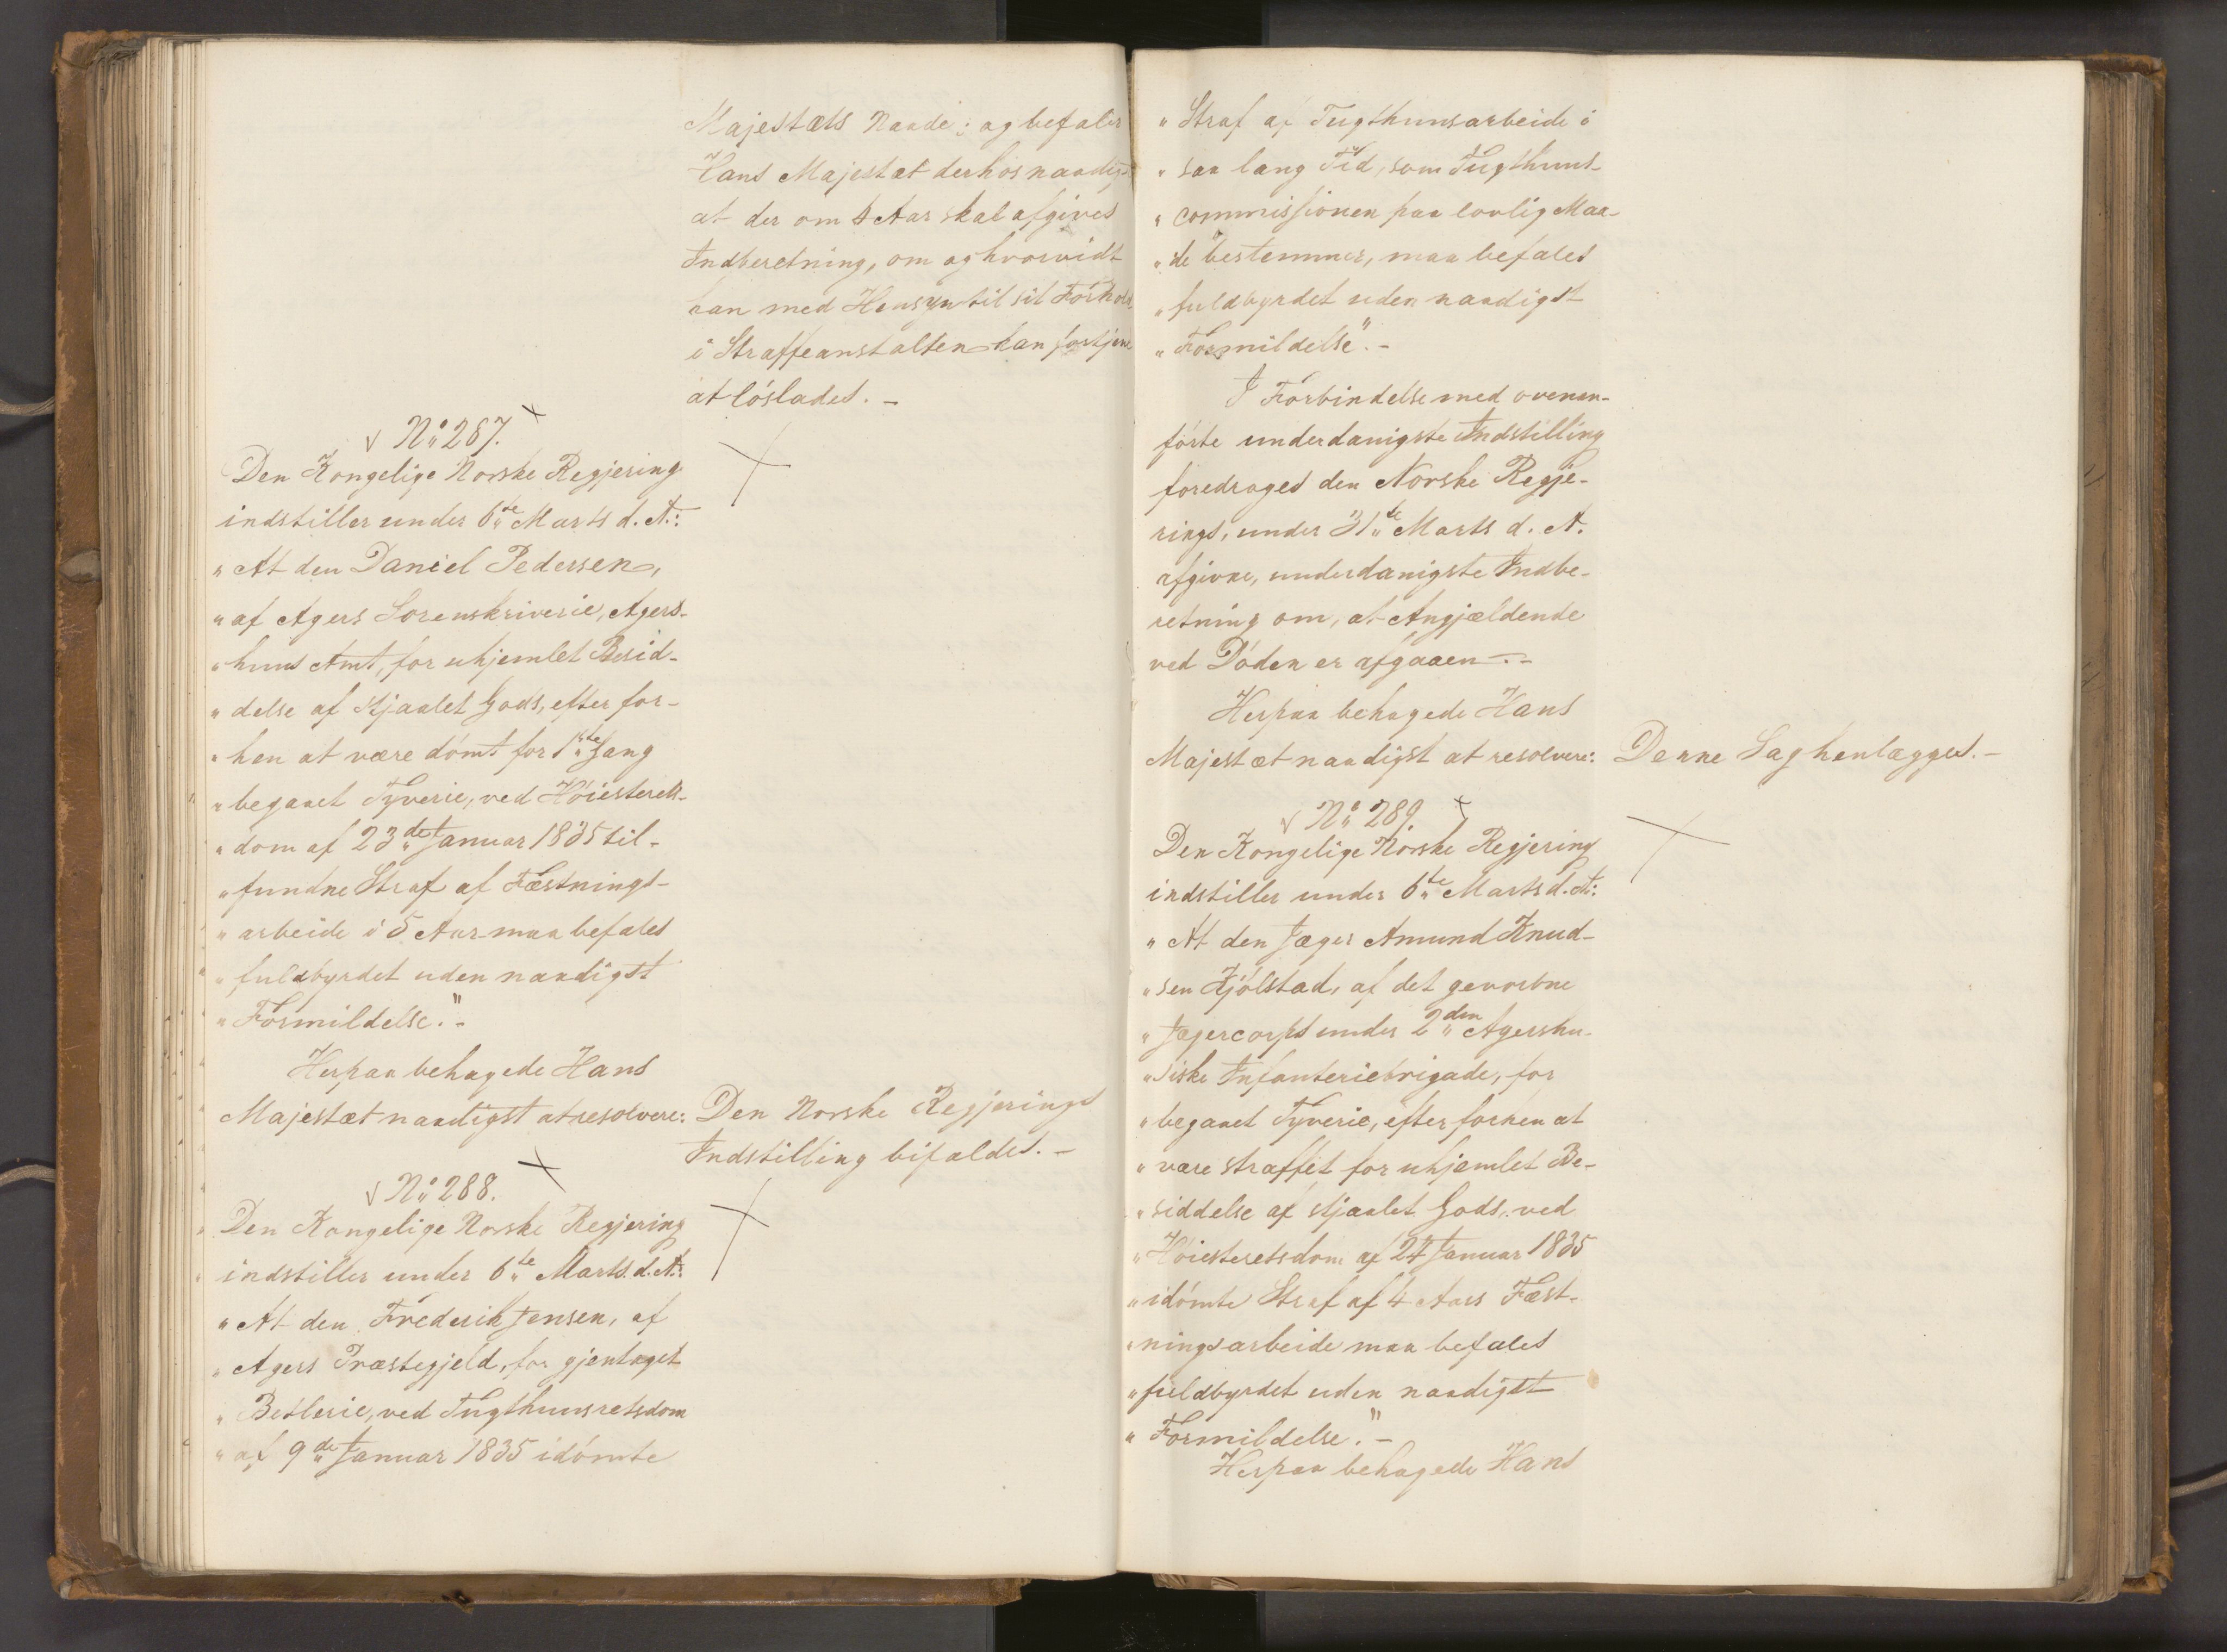 Majestæts Naade; og befaler
Hans Majestæt derhos naadigst
at der om 4 Aar skal afgives
Indberetning, om og hvorvidt
han med Hensyn til sit Forhold
i Straffeanstalten kan fortjene
at löslades. -
No 287.
Den Kongelige Norske Regjering
indstiller under 6te Marts d. A.:
"At den Daniel Pedersen,
"af Agers Sorenskriverie, Agers-
"huus Amt, for uhjemlet Besid-
"delse af stjaalet Gods, efter for-
"hen at være dömt for 1ste Gang
"begaaet Tyverie, ved Höiesterets-
"dom af 23de Januar 1835 til-
"fundne Straf af Fæstnings-
"arbeide i 5 Aar maa befales
"fuldbyrdet uden naadigst
"Formildelse." -
Herpaa behagede Hans
Majestæt naadigst at resolvere:
Den Norske Regjerings
Indstilling bifaldes. -
No 288.
Den Kongelige Norske Regjering
indstiller under 6te Marts d. A.:
"At den Frederik Jensen, af
"Agers Præstegjeld, for gjentaget
"Betlerie, ved Tugthuusretsdom
"af 9de Januar 1835 idömte
"Straf af Tugthuusarbeide i
"saa lang Tid, som Tugthuus-
"commissionen paa lovlig Maa-
"de bestemmer, maa befales
"fuldbyrdet uden naadigst
"Formildelse". -
I Forbindelse med ovenan-
förte underdanigste Indstilling
foredroges den Norske Regje-
rings, under 31te Marts d. A.
afgivne, underdanigste Indbe-
retning om, at Angjældende
ved Döden er afgaaen. -
Herpaa behagede Hans
Majestæt naadigst at resolvere:
Denne Sag henlægges. -
No 289.
Den Kongelige Norske Regjering
indstiller under 6te Marts d. A.:
"At den Jæger Amund Knud-
"sen Hjölstad, af det gevorbne
"Jægercorps under 2den Agershu-
"siske Infanteriebrigade, for
"begaaet Tyverie, efter forhen at
"være straffet for uhjemlet Be-
"siddelse af stjaalet Gods, ved
"Höiesteretsdom af 24 Januar 1835
"idömte Straf af 4 Aars Fæst-
"ningsarbeide maa befales
"fuldbyrdet uden naadigst
"Formildelse." -
Herpaa behagede Hans